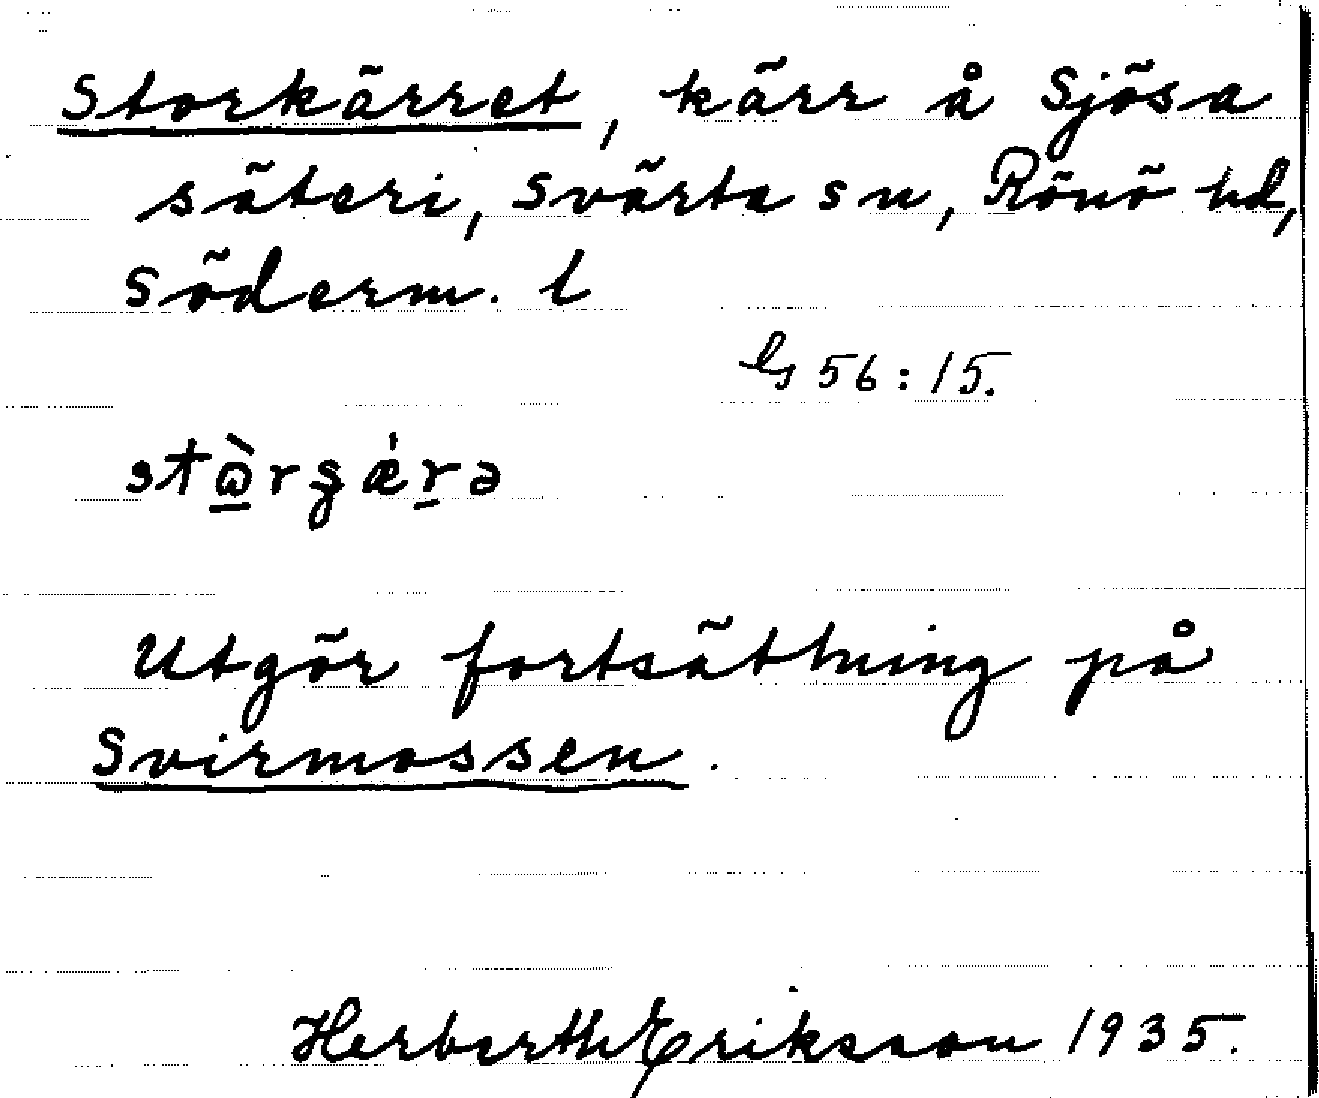 Storkärret, kärr å Sjösa
säteri, Svärta sn, Rönö hd,
Söderm. l
G 56:15.
Utgör fortsättning på
Svirmossen.
Herberth Eriksson 1935.